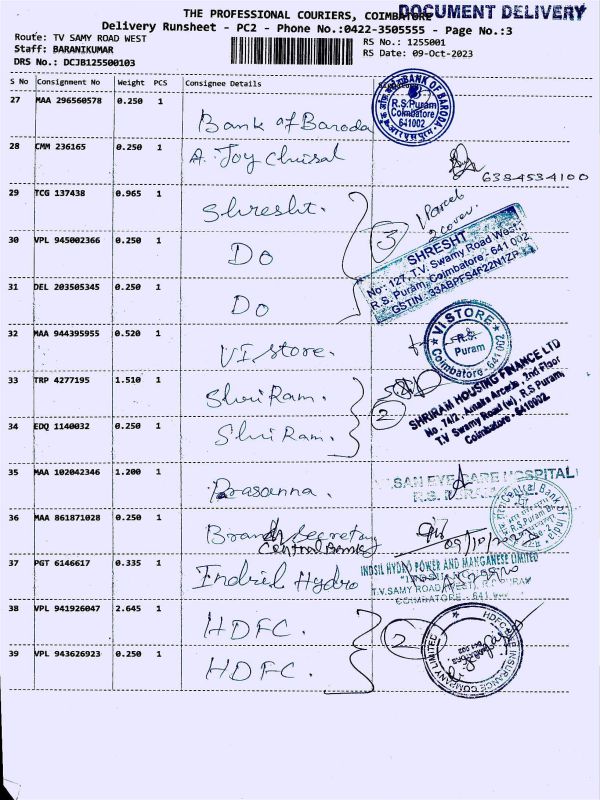 THE PROFESSIONAL COURIERS, COIMBATORE
DOCUMENT DELIVERY
Delivery Runsheet - PC2 - Phone No.:0422-3505555 - Page No.:3
Route: TV SAMY ROAD WEST
RS No.: 1255001
Staff: BARANIKUMAR
RS Date: 09-Oct-2023
DRS No.: DCJB125500103
S No Consignment No Weight PCS Consignee Details
27 MAA 296560578 0.250 1 Bank of Baroda
BANK OF BARODA
R.S.Puram
Coimbatore
641002
28 CMM 236165 0.250 1 A. Joy
6384534100
29 TCG 137438 0.965 1 Shresht.
1 Parcel
2 cover
3
30 VPL 945002366 0.250 1 Do
SHRESHT
No: 127, T.V. Swamy Road West,
R.S. Puram, Coimbatore - 641 002.
31 DEL 203505345 0.250 1 Do
32 MAA 944395955 0.520 1 VI store.
VI STORE
R.S.
Puram
Coimbatore - 641 002
33 TRP 4277195 1.510 1 Shri Ram.
2
SHRIRAM HOUSING FINANCE LTD
No. 74/2, Amaka Arcade, 2nd Floor
T.V Swamy Road (w), R.S Puram,
Coimbatore - 641002.
34 EDQ 1140032 0.250 1 Shri Ram.
35 MAA 102042346 1.200 1 Prasanna.
SAN EYE CARE HOSPITAL
R.S. PURAM
36 MAA 861871028 0.250 1 Branch Secretary
Central Bank
Central Bank of India
37 PGT 6146617 0.335 1 Indsil Hydro
INDSIL HYDRO POWER AND MANGANESE LIMITED
T.V.SAMY ROAD WEST, R.S.PURAM
COIMBATORE - 641
38 VPL 941926047 2.645 1 HDFC.
2
INSURANCE COMPANY LIMITED
39 VPL 943626923 0.250 1 HDFC.